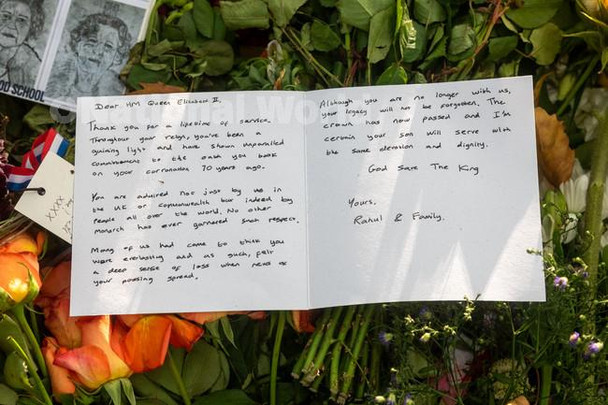 OD SCHOOL
XXXX
Dear HM Queen Elizabeth II,
Thank you for a lifetime of service.
Throughout your reign, you've been a
guiding light and have shown unparralled
commitment to the oath you took
on your corronation 70 years ago.
You are admired not just by us in
the UK or commonwealth but indeed by
people all over the world. No other
Monarch has ever garnered such respect.
Many of us had come to think you
were everlasting and as such, felt
a deep sense of loss when news of
your passing spread.
Although you are no longer with us,
your legacy will not be forgotten. The
crown has now passed and I'm
certain your son will serve with
the same devotion and dignity.
God Save The King
Yours,
Rahul & Family.